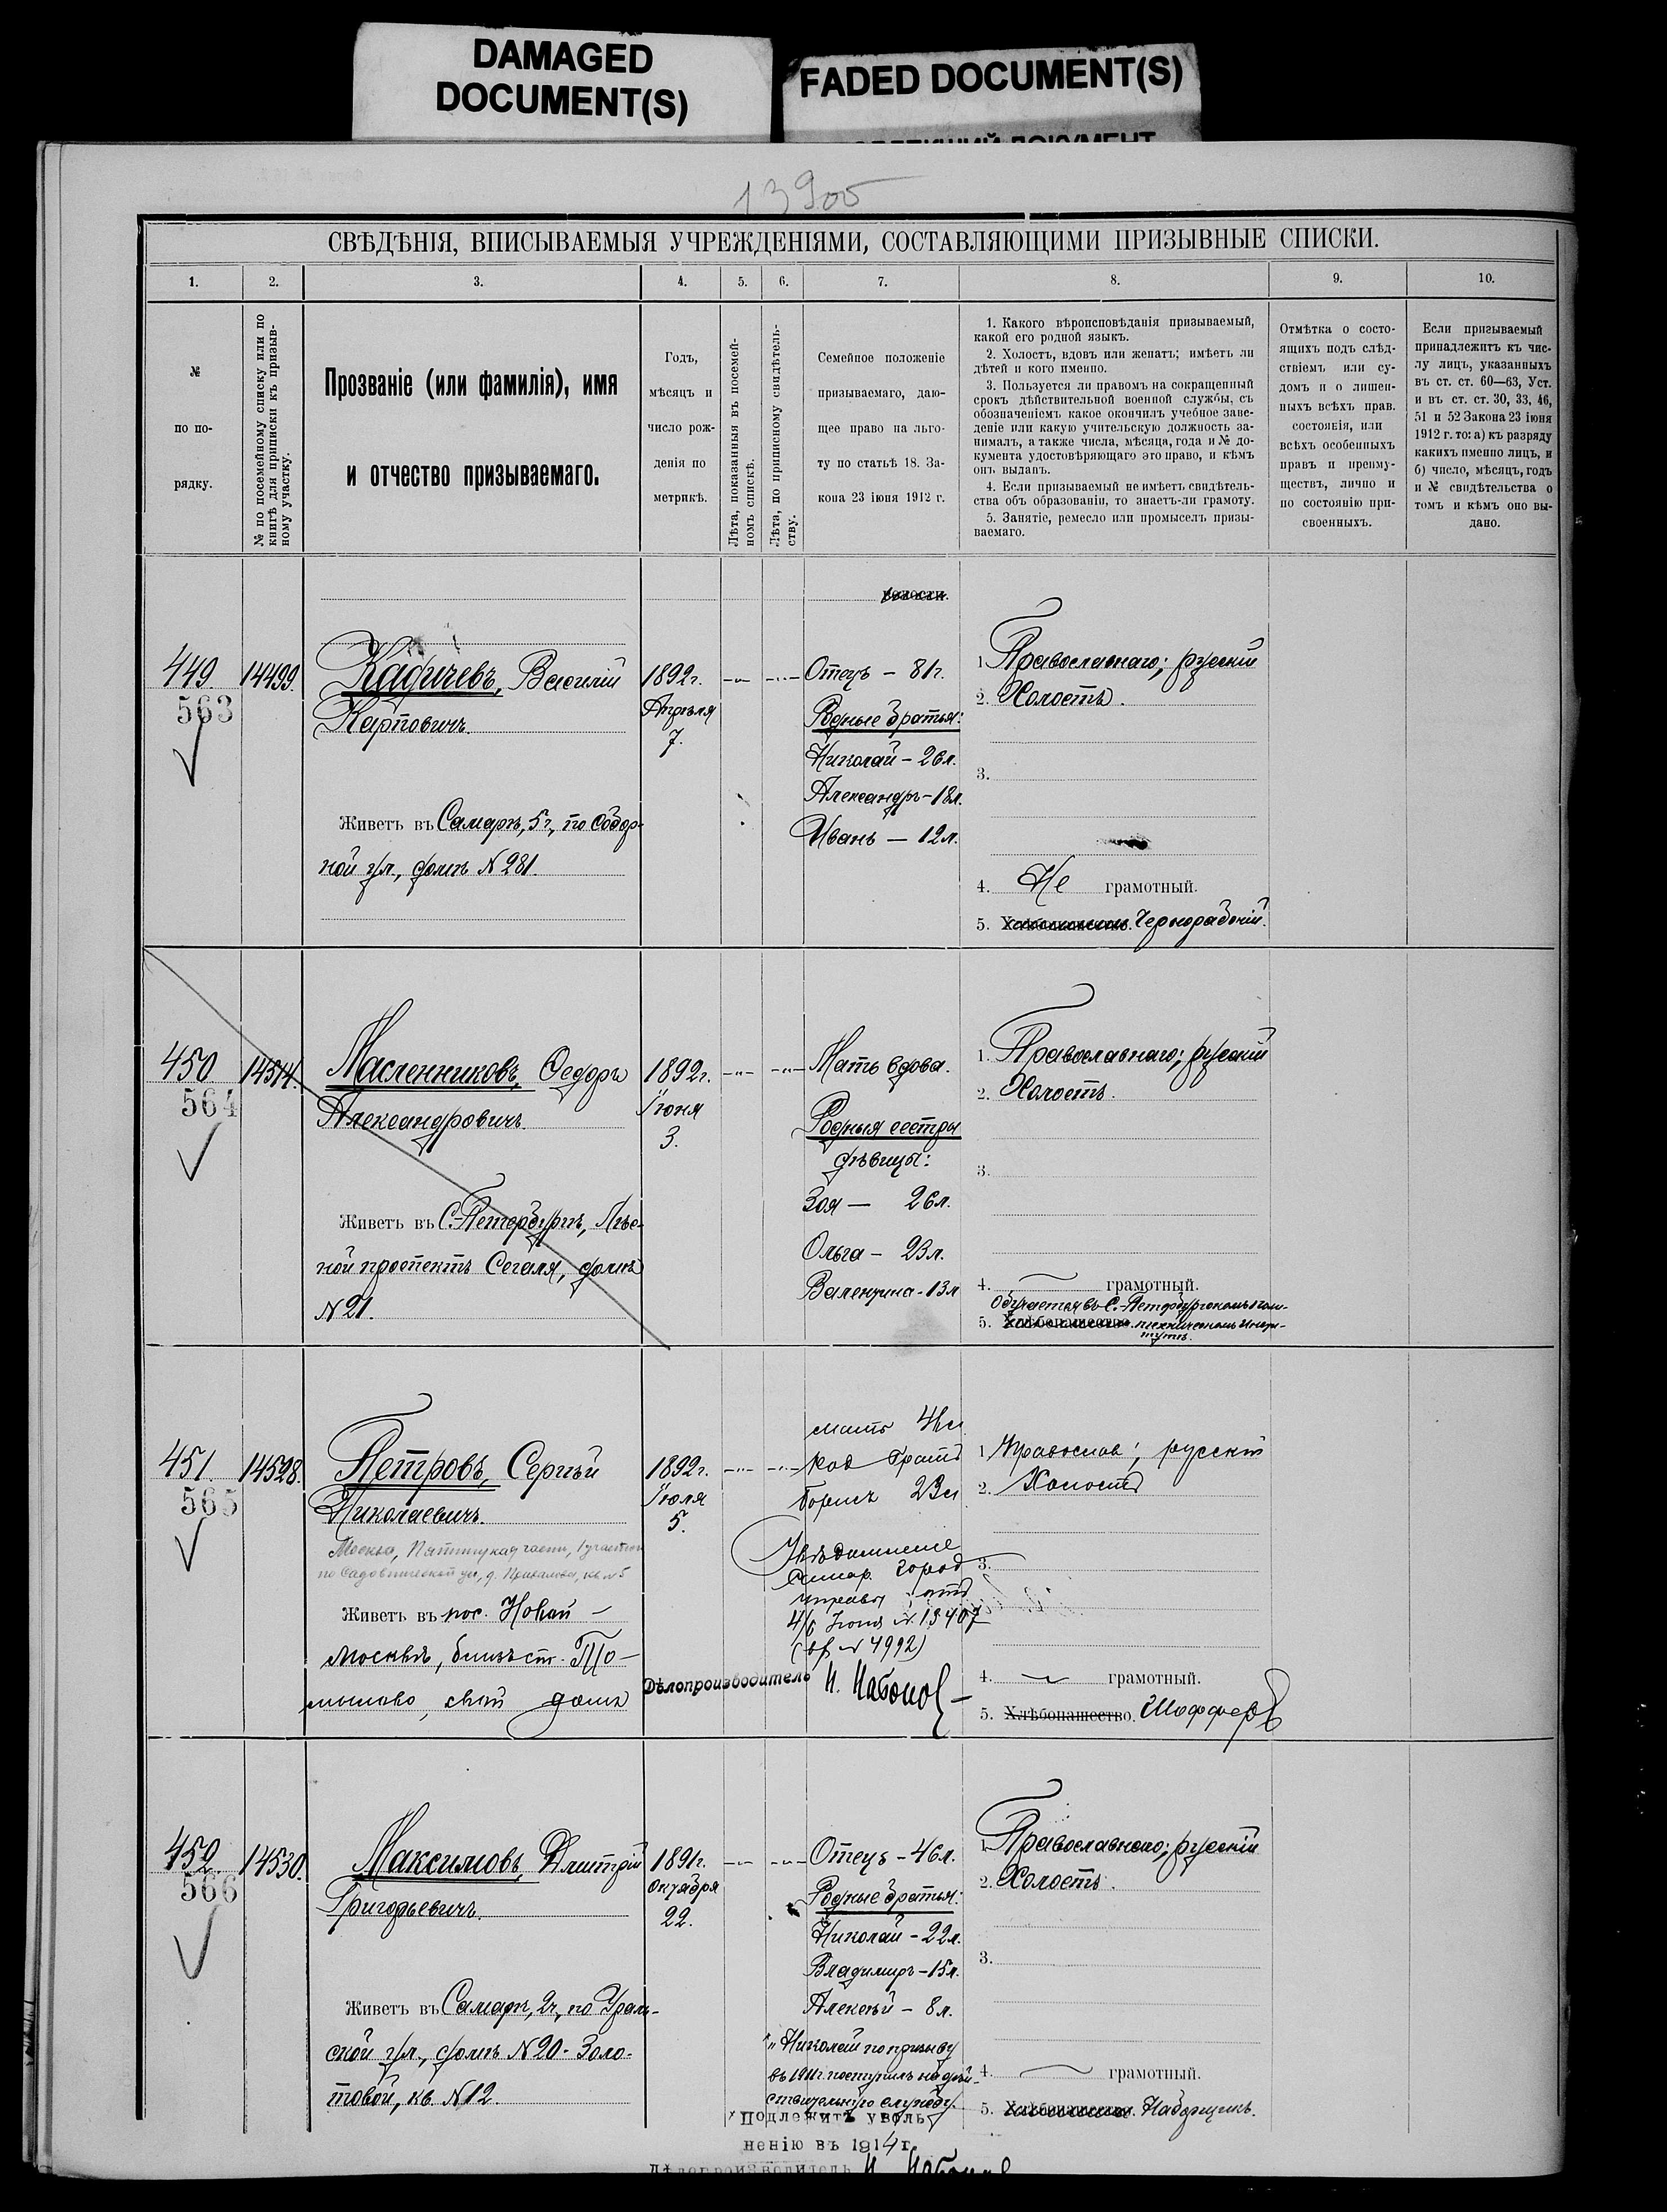 DAMAGED
DOCUMENT(S)
FADED DOCUMENT(S)
13900
СВѢДѢНІЯ, ВПИСЫВАЕМЫЯ УЧРЕЖДЕНІЯМИ, СОСТАВЛЯЮЩИМИ ПРИЗЫВНЫЕ СПИСКИ.
1. 2. 3. 4. 5. 6. 7. 8. 9. 10.
№
по по-
рядку.
№ по посемейному списку или по
книгѣ для приписки къ призыв-
ному участку.
Прозваніе (или фамилія), имя
и отчество призываемаго.
Годъ,
мѣсяцъ и
число рож-
денія по
метрикѣ.
Лѣта, показанныя въ посемей-
номъ спискѣ.
Лѣта, по приписному свидѣтель-
ству.
Семейное положеніе
призываемаго, даю-
щее право на льго-
ту по статьѣ 18. За-
кона 23 іюня 1912 г.
1. Какого вѣроисповѣданія призываемый,
какой его родной языкъ.
2. Холостъ, вдовъ или женатъ; имѣетъ ли
дѣтей и кого именно.
3. Пользуется ли правомъ на сокращенный
срокъ дѣйствительной военной службы, съ
обозначеніемъ какое окончилъ учебное заве-
деніе или какую учительскую должность за-
нималъ, а также числа, мѣсяца, года и № до-
кумента удостовѣряющаго это право, и кѣмъ
онъ выданъ.
4. Если призываемый не имѣетъ свидѣтель-
ства объ образованіи, то знаетъ-ли грамоту.
5. Занятіе, ремесло или промыселъ призы-
ваемаго.
Отмѣтка о состо-
ящихъ подъ слѣд-
ствіемъ или су-
домъ и о лишен-
ныхъ всѣхъ прав.
состоянія, или
всѣхъ особенныхъ
правъ и преиму-
ществъ, лично и
по состоянію при-
своенныхъ.
Если призываемый
принадлежитъ къ чис-
лу лицъ, указанныхъ
въ ст. ст. 60—63, Уст.
и въ ст. ст. 30, 33, 46,
51 и 52 Закона 23 іюня
1912 г. то: а) къ разряду
какихъ именно лицъ, и
б) число, мѣсяцъ, годъ
и № свидѣтельства о
томъ и кѣмъ оно вы-
дано.
волости.
449.
563
14499.
Кадичевъ, Василій
Карповичъ.
Живетъ въ Самарѣ, 5 ч., по Собор-
ной ул., домъ № 281.
1892 г.
Апрѣля
7.
Отецъ – 81 г.
Родные братья:
Николай – 26 л.
Александръ – 18 л.
Иванъ — 12 л.
1. Православнаго; русскій
2. Холостъ.
3.
4. Не грамотный.
5. Хлѣбопашество. Чернорабочій.
450
564
14514.
Масленниковъ, Федоръ
Александровичъ.
Живетъ въ С.-Петербургѣ, Лѣс-
ной проспектъ Сегаля, домъ
№ 21.
1892 г.
Іюня
3.
Мать вдова.
Родныя сестры
дѣвицы:
Зоя — 26 л.
Ольга – 23 л.
Валентина – 13 л
1. Православнаго; русскій
2. Холостъ.
3.
4. грамотный.
Обучается въ С.-Петербургскомъ
5. Хлѣбопашество. техническомъ инсти-
тутѣ.
451.
565
14528.
Петровъ, Сергѣй
Николаевичъ.
Москва, Пятницкая части, 1 участка
Живетъ въ пос. Новой –
Москвѣ, близъ ст. То-
мылово, свой домъ
1892 г.
Іюля
5.
мать
род братъ
Борисъ 23 л
Увѣдомленіе
Самар. город
управы отъ
4/6 Іюня № 13407
(вх № 4992)
Дѣлопроизводитель
1. Православ; русскій
2. Холостъ
3.
4. грамотный.
5. Хлѣбопашество. Шофферъ
452.
566
14530.
Максимовъ, Дмитрій
Григорьевичъ.
Живетъ въ Самарѣ, 2 ч., по Ураль-
ской ул., домъ № 20 - Золо-
товой, кв. № 12.
1891 г.
Октября
22.
Отецъ – 46 л.
Родные братья:
Николай – 22 л.
Владимиръ – 15 л.
Алексѣй – 8 л.
"Николай по призыву
въ 1911 г. поступилъ на дѣй-
ствительную службу.
Подлежитъ уволь
ненію въ 1914 г.
Дѣлопроизводитель
1. Православнаго; русскій
2. Холостъ.
3.
4. грамотный.
5. Хлѣбопашество. Наборщикъ.